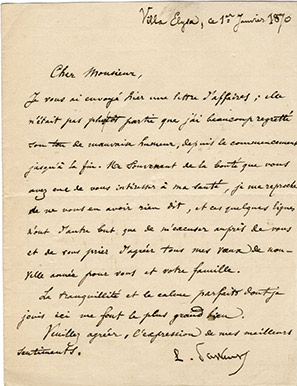 Villa Elysa, ce 1er Janvier 1870
Cher Monsieur,
Je vous ai envoyé hier une lettre d'affaires ; elle
n'était pas plutôt partie que j'ai beaucoup regretté
son ton de mauvaise humeur, depuis le commencement
jusqu'à la fin. Me souvenant de la bonté que vous
avez eue de vous intéresser à ma santé, je me reproche
de ne vous en avoir rien dit, et ces quelques lignes
n'ont d'autre but que de m'excuser auprès de vous
et de vous prier d'agréer tous mes vœux de nou-
velle année pour vous et votre famille.
La tranquillité et le calme parfaits dont je
jouis ici me font le plus grand bien.
Veuillez agréer, l'expression de mes meilleurs
sentiments.
L. Pasteur